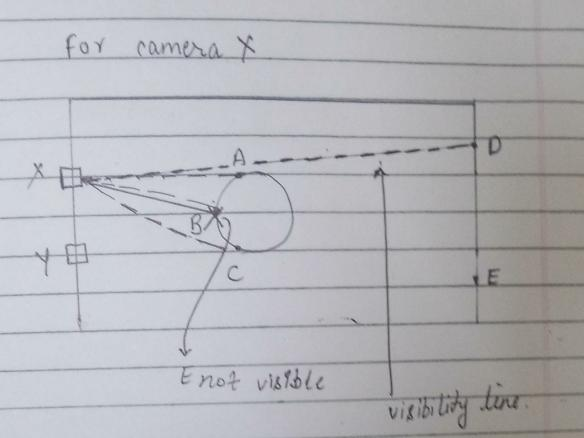 for camera X
A
D
X
B
Y
C
E
E not visible
visibility line.